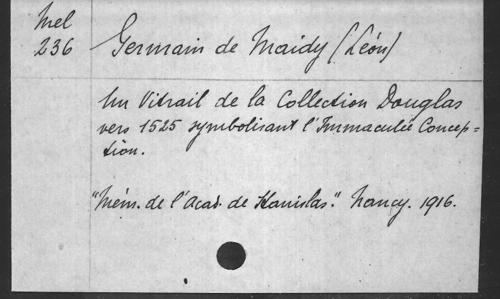 Mel
236
Germain de Maidy (Léon)
Un Vitrail de la Collection Douglas
vers 1525 symbolisant l'Immaculée Concep=
tion.
"Mém. de l'Acad. de Stanislas." Nancy. 1916.